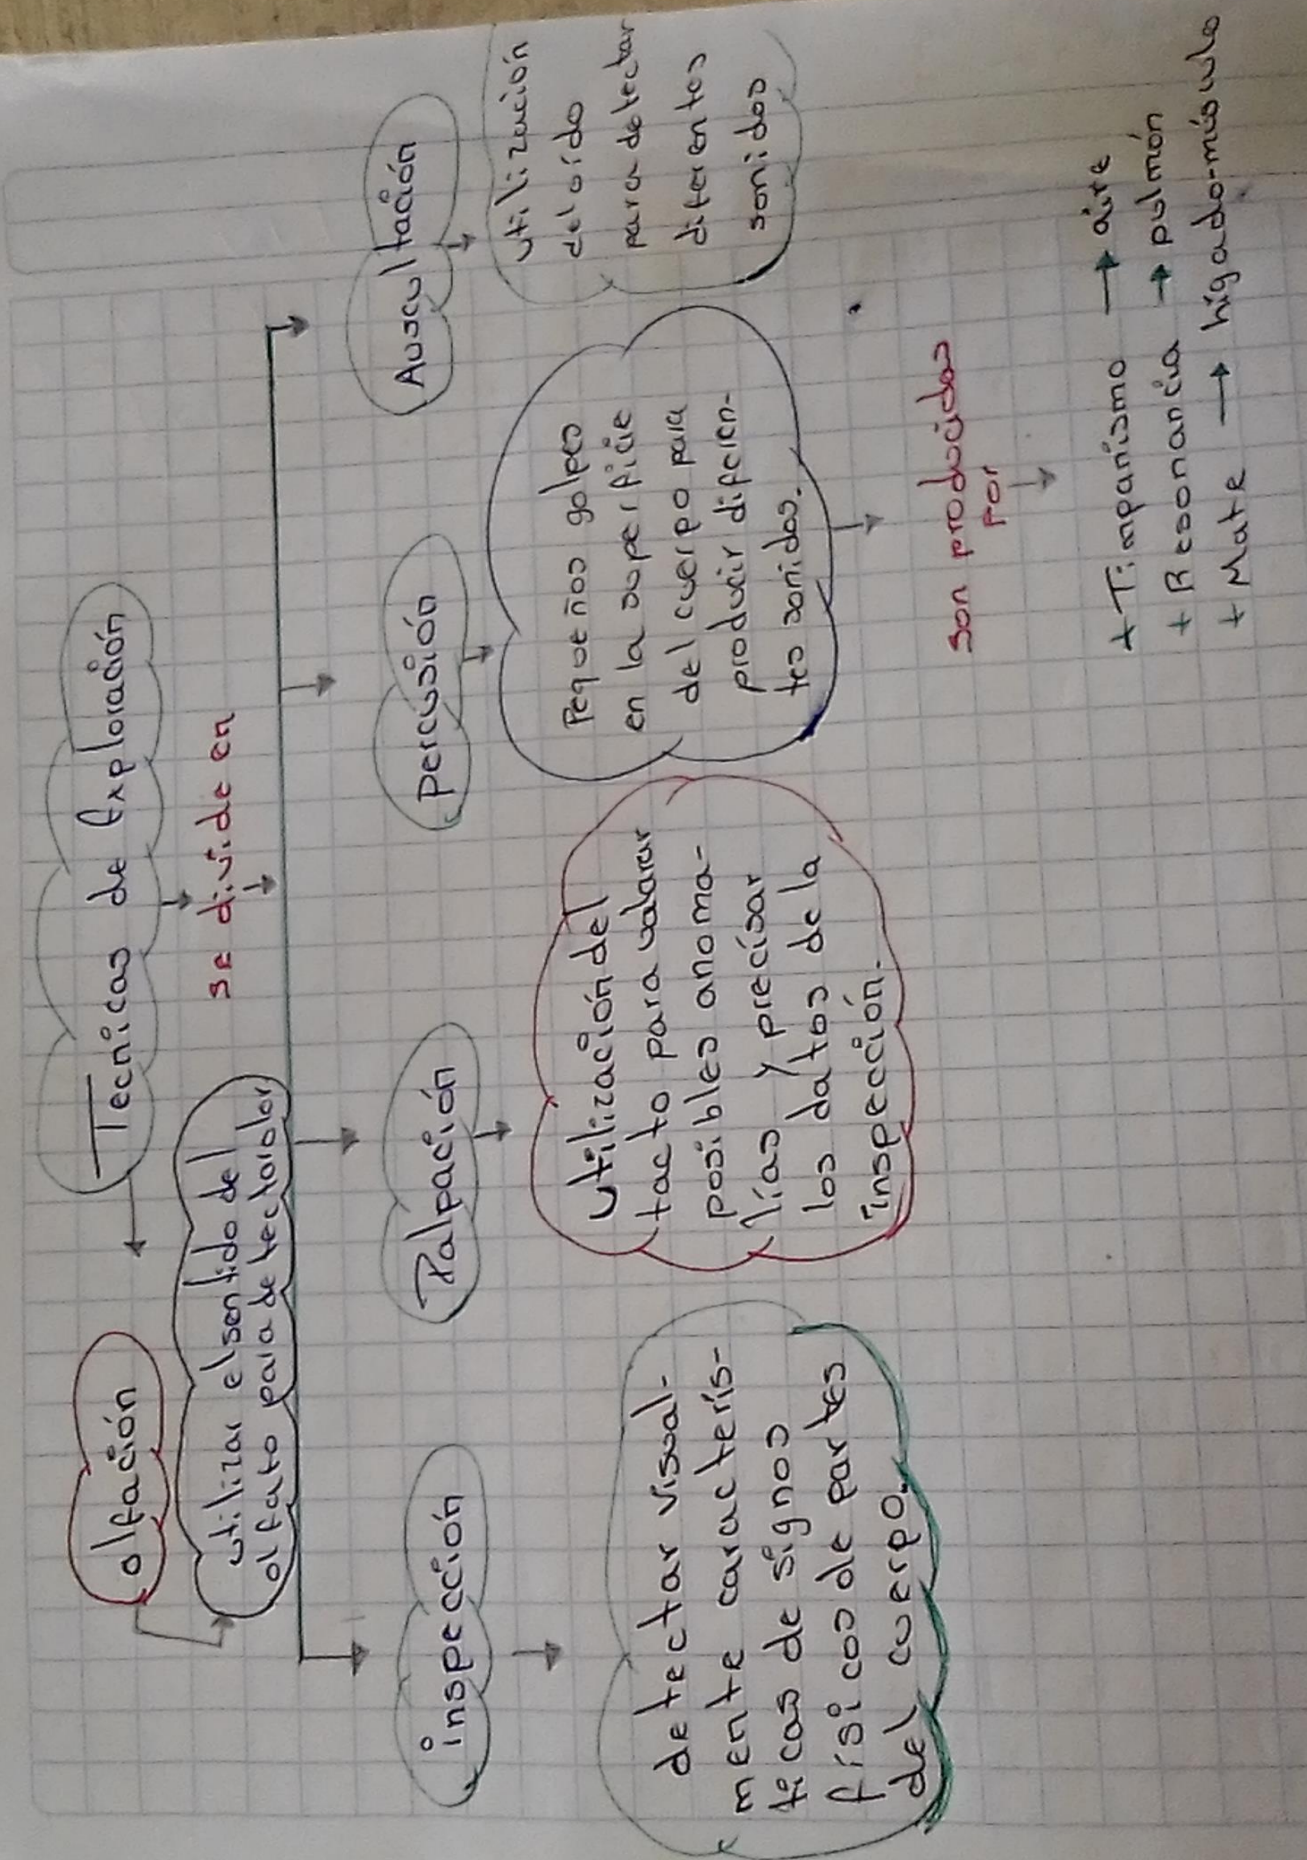 Tecnicas de Exploración
se divide en
olfación
utilizar el sentido del
olfato para detectar olor
inspección
detectar visual-
mente caracterís-
ticas de signos
físicos de partes
del cuerpo.
Palpación
utilización del
tacto para valorar
posibles anoma-
lías y precisar
los datos de la
inspección.
percusión
Pequeños golpes
en la superficie
del cuerpo para
producir diferen-
tes sonidos.
son producidos
por
+ Timpanismo → aire
+ Resonancia → pulmón
+ Mate → hígado-músculo
Auscultación
utilización
del oído
para detectar
diferentes
sonidos